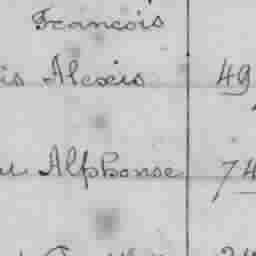 Francois
is Alexis 49
Alphonse 74